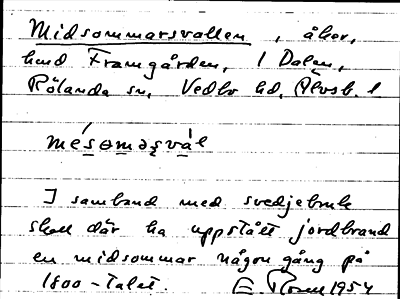 Midsommarsvallen, åker,
hmd Framgården, 1 Dalen,
Rölanda sn, Vedbo hd, Älvsb. l
mésɷmǝṣvàl
I samband med svedjebruk
skall där ha uppstått jordbrand
en midsommar någon gång på
1800-talet. E. 1954